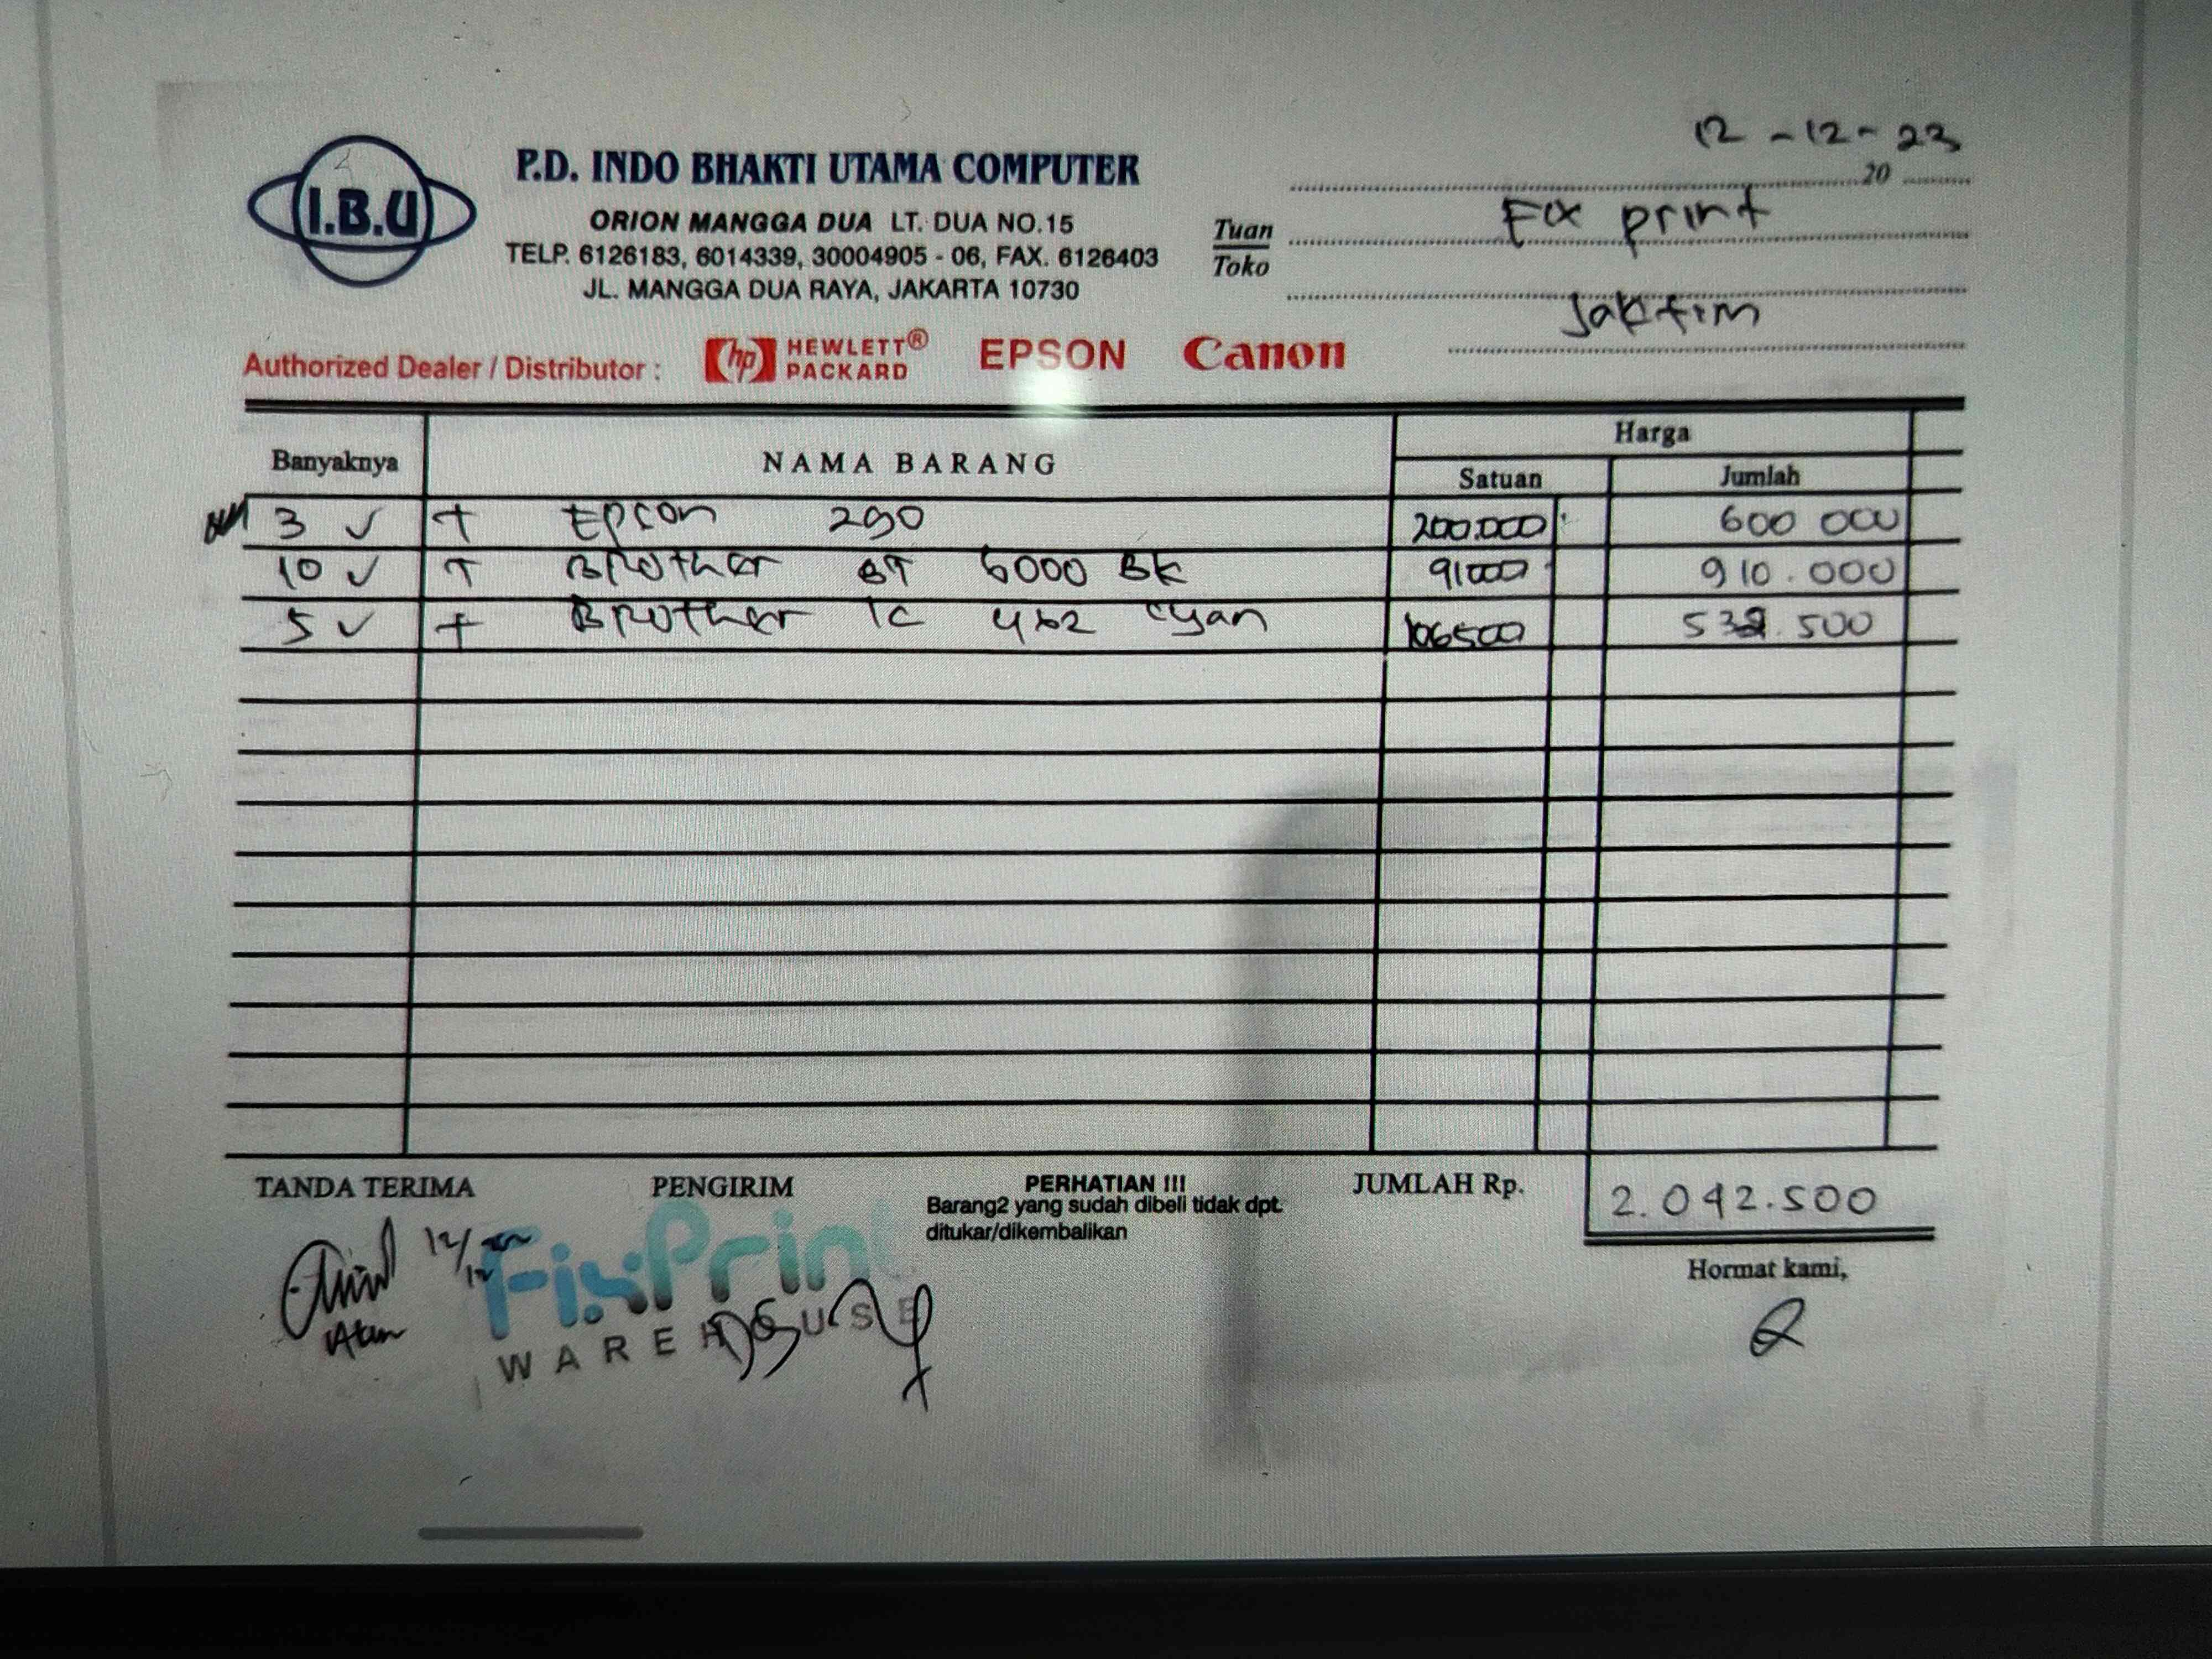 12 - 12 - 23
I.B.U
P.D. INDO BHAKTI UTAMA COMPUTER
20
ORION MANGGA DUA LT. DUA NO.15
Tuan
Toko
Fix print
TELP. 6126183, 6014339, 30004905 - 06, FAX. 6126403
JL. MANGGA DUA RAYA, JAKARTA 10730
Jaktim
Authorized Dealer / Distributor : hp HEWLETT® PACKARD EPSON Canon
Banyaknya NAMA BARANG Harga
Satuan Jumlah
3 ✓ + Epson 290 200.000 600 000
10 ✓ + Brother BT 6000 BK 91000 910.000
5 ✓ + Brother lc 462 cyan 106500 532.500
TANDA TERIMA PENGIRIM PERHATIAN !!! JUMLAH Rp. 2.042.500
Barang2 yang sudah dibeli tidak dpt.
ditukar/dikembalikan
12/12
FixPrin
WAREHOUSE
Hormat kami,